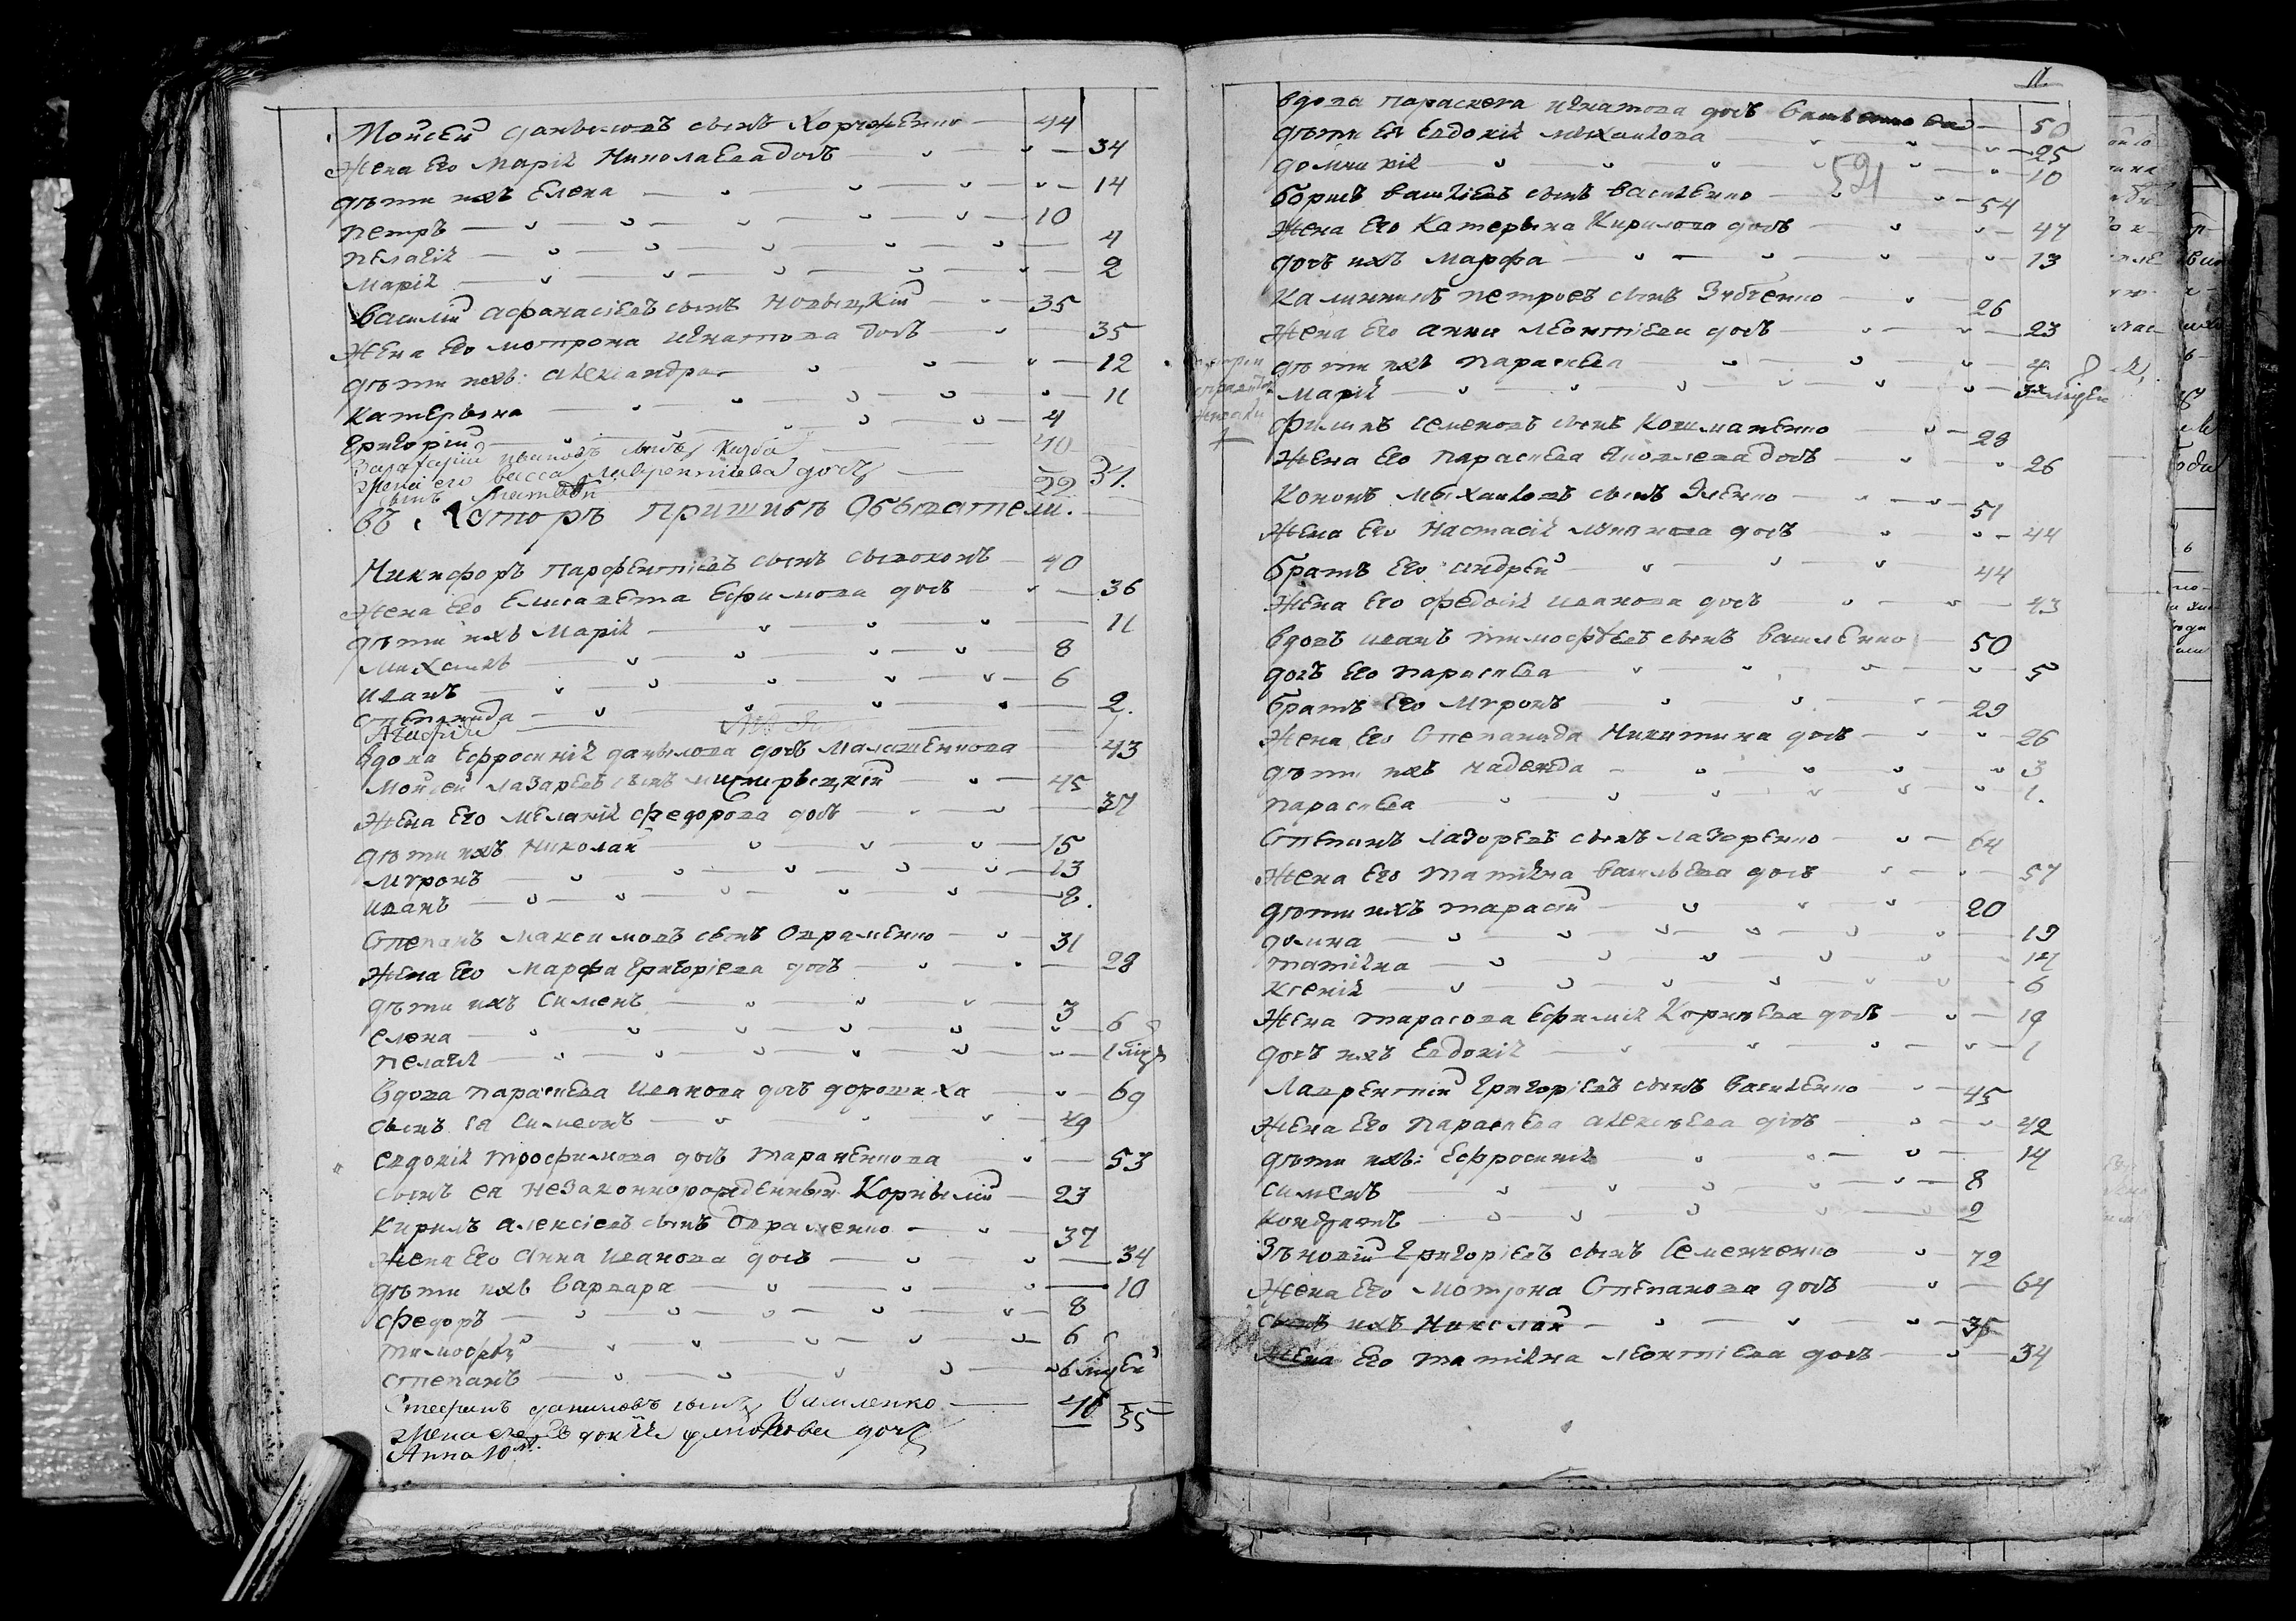 Мойсей данѣиловъ сынъ Хоружєнко — 44
Жена Єго Марія Николаєва дочь — 34
дѣти ихъ Єлєна — 14
пєтръ — 10
пєлагія — 4
Марія — 2
Василій афанасієвъ сынъ новыцкій — 35
Жєна Єго мотрона игнатова дочь — 35
дѣти ихъ: алеѯандра — 12
Катєрына — 11
Григорій — 4
ивановъ сынъ — 40
жена его васса Лаврентіева дочь — 31.
сынъ — 22
въ Хуторѣ Обыватели.
Никифоръ парфєнтієвъ сынъ — 40
Жєна Єго Єлисавєта Єфимова дочь — 36
дѣти ихъ Марія — 11
Михаилъ — 8
иванъ — 6
стєпанида — 2.
вдова Єфросинія данылова дочь Малашєнкова — 43
Мойсей лазарєвъ сынъ — 45
Жєна Єго мєланія фєдорова дочь — 37
дѣти ихъ николай — 15
мѵронъ — 13
иванъ — 8.
Стєпанъ максимовъ сынъ Овраменко — 31
Жєна Єго марфа григорієва дочь — 28
дѣти ихъ симєнъ — 3
єлєна — 6
пєлагія — 1 мцъ
вдова параскєва иванова дочь дорошиха — 69
сынъ єя симєонъ — 49
євдокія трофимова дочь таранєнкова — 53
сынъ єя нєзаконнорождєнный Корнылій — 23
Кирилъ алєксієвъ сынъ Овраменко — 37
Жєна Єго Анна иванова дочь — 34
дѣти ихъ варвара — 10
фєдоръ — 8
тимофѣй — 6
стєпанъ — 6 мцєй
Стефанъ даниловъ сынъ Василенко — 46
Жена его Евдокія дочь — 35
Анна 10
11.
вдова параскєва игнатова дочь — 50
дѣти єя Євдокія михаилова — 25
домникія — 10
521
борисъ василієвъ сынъ василєнко — 54
Жєна Єго Катєрына Кирилова дочь — 47
дочь ихъ марфа — 13
Калинникъ пєтровъ сынъ Зубчєнко — 26
Жєна Єго анна лєонтієва дочь — 23
дѣти ихъ параскєва — 4
Марія — 3х мцєй
филипъ сєменовъ сынъ — 28
Жєна Єго параскєва Яковлєва дочь — 26
Кононъ михаиловъ сынъ — 51
Жєна Єго настасія дочь — 44
братъ Єго андрєй — 44
Жєна Єго фєдосія иванова дочь — 43
вдовъ иванъ тимофѣєвъ сынъ василєнко — 50
дочь Єго параскєва — 5
братъ Єго мѵронъ — 29
Жєна Єго Стєпанида Никитина дочь — 26
дѣти ихъ надєжда — 3
параскєва — 1.
Стєпанъ лазорєвъ сынъ лазорєнко — 64
Жєна Єго татіяна васильєва дочь — 57
дѣти ихъ тарасій — 20
домна — 19
татіяна — 14
ксєнія — 6
Жєна тарасова Єфимія Корнѣєва дочь — 19
дочь ихъ Євдокія — 1
Лаврєнтій григорієвъ сынъ василєнко — 45
Жєна Єго параскєва алєксѣєва дочь — 42
дѣти ихъ: Єфросинія — 14
симєнъ — 8
кондратъ — 2
Зѣновій григорієвъ сынъ Сємєнчєнко — 72
Жєна Єго мотрона Стєпанова дочь — 64
сынъ ихъ николай — 35
Жєна Єго татіяна лєонтієва дочь — 34